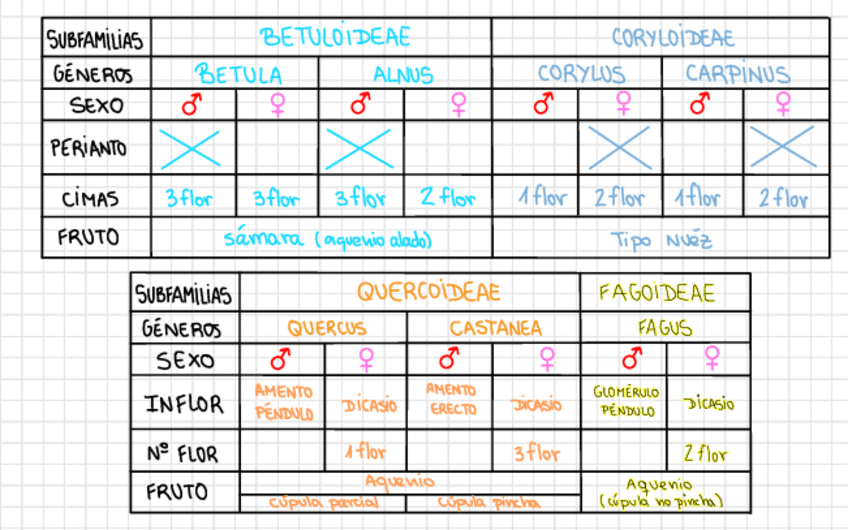 SUBFAMİLİAS BETULOİDEAE CORYLOİDEAE
GÉNEROS BETULA ALNUS CORYLUS CARPİNUS
SEXO ♂ ♀ ♂ ♀ ♂ ♀ ♂ ♀
PERİANTO
CİMAS 3 flor 3 flor 3 flor 2 flor 1 flor 2 flor 1 flor 2 flor
FRUTO sámara (aquenio alado) Tipo NUÉZ
SUBFAMİLİAS QUERCOİDEAE FAGOİDEAE
GÉNEROS QUERCUS CASTANEA FAGUS
SEXO ♂ ♀ ♂ ♀ ♂ ♀
INFLOR AMENTO PÉNDULO DİCASİO AMENTO ERECTO DİCASİO GLOMÉRULO PÉNDULO DİCASİO
Nº FLOR 1 flor 3 flor 2 flor
FRUTO Aquenio Aquenio
cúpula parcial cúpula pincha (cúpula no pincha)